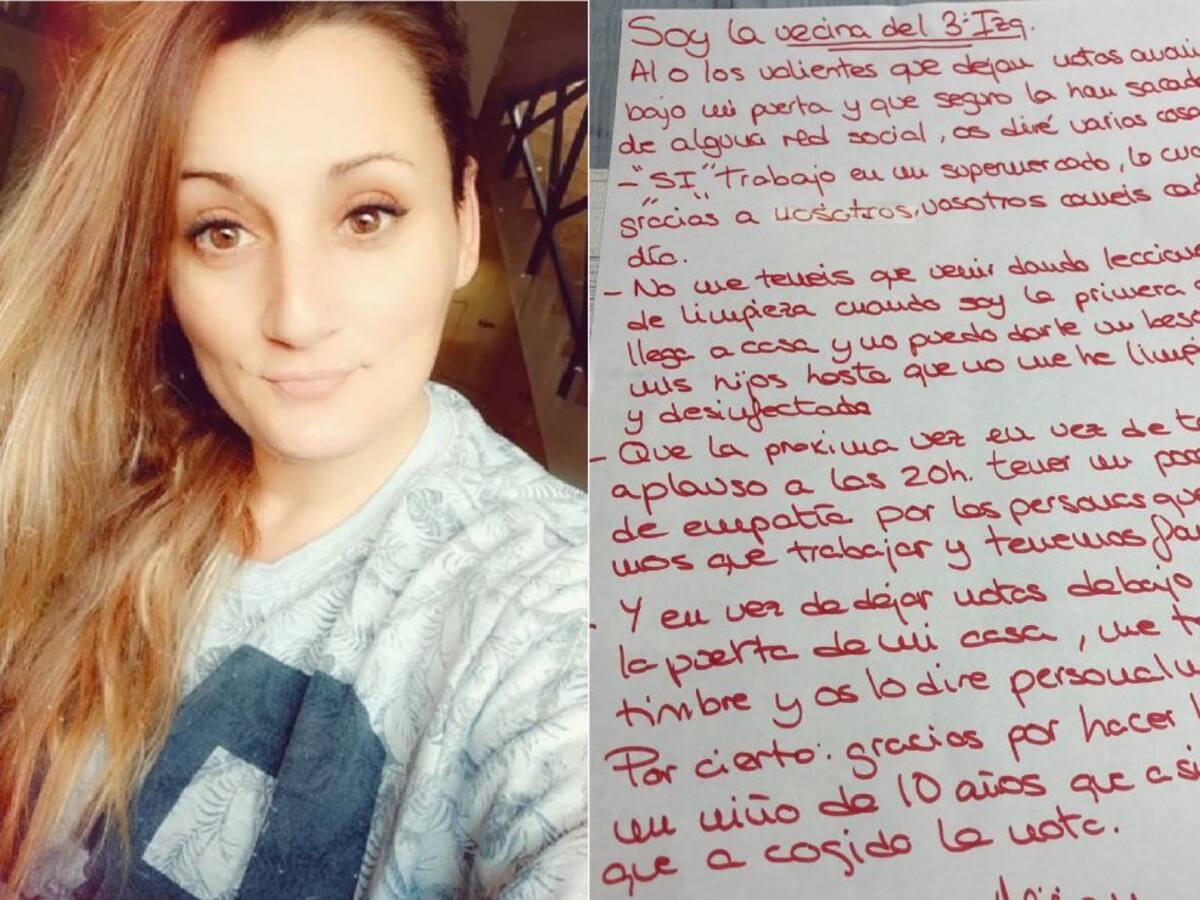 Soy la vecina del 3º Izq.
Al o los valientes que dejan notas
bajo mi puerta y que seguro la han
de alguna red social, os diré varias
- "SI" Trabajo en un supermercado, lo
gracias a nosotros, vosotros comeis
día.
- No me teneis que venir dando
de limpieza cuando soy la primera
llega a casa y no puedo darle un
mis hijos hasta que no me he
y desinfectado
- Que la proxima vez en vez de
aplauso a las 20h. tener un
de empatía por las personas
mos que trabajar y tenemos
- Y en vez de dejar notas debajo
la puerta de mi casa, me
timbre y os lo dire
Por cierto: gracias por hacer
un niño de 10 años que
que a cogido la nota.